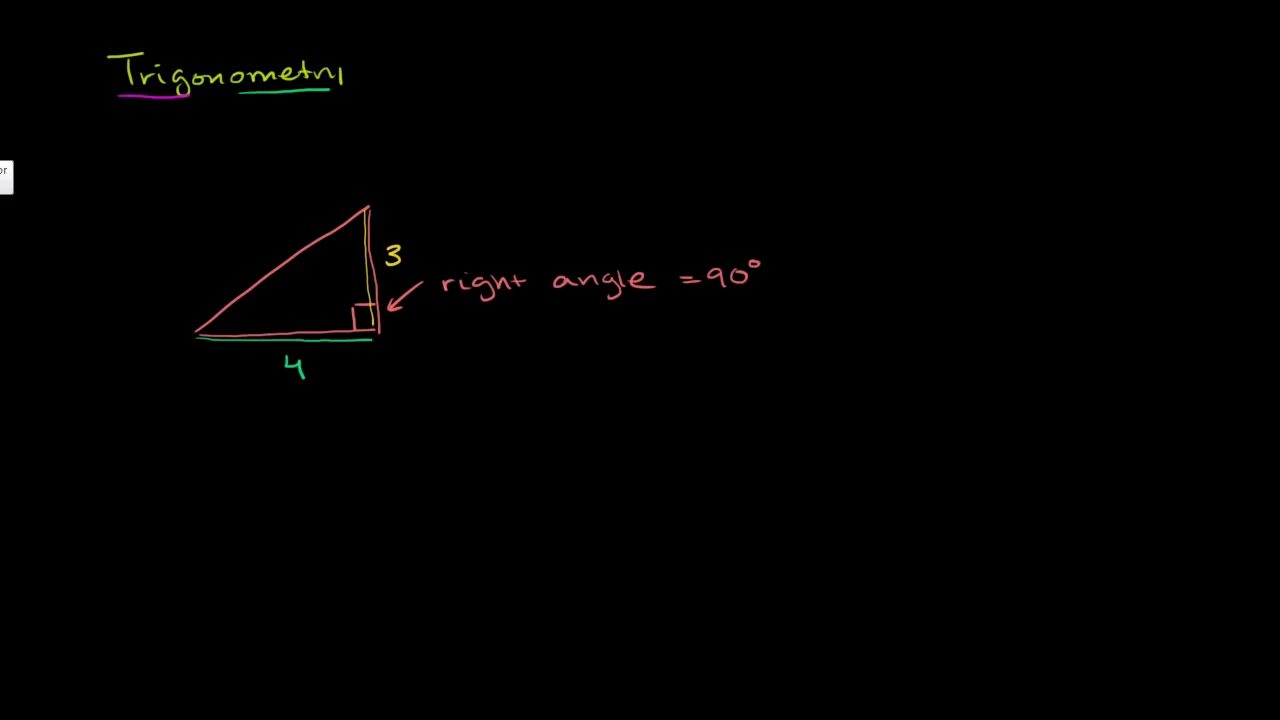 Trigonometry
3
right angle = 90°
4
or